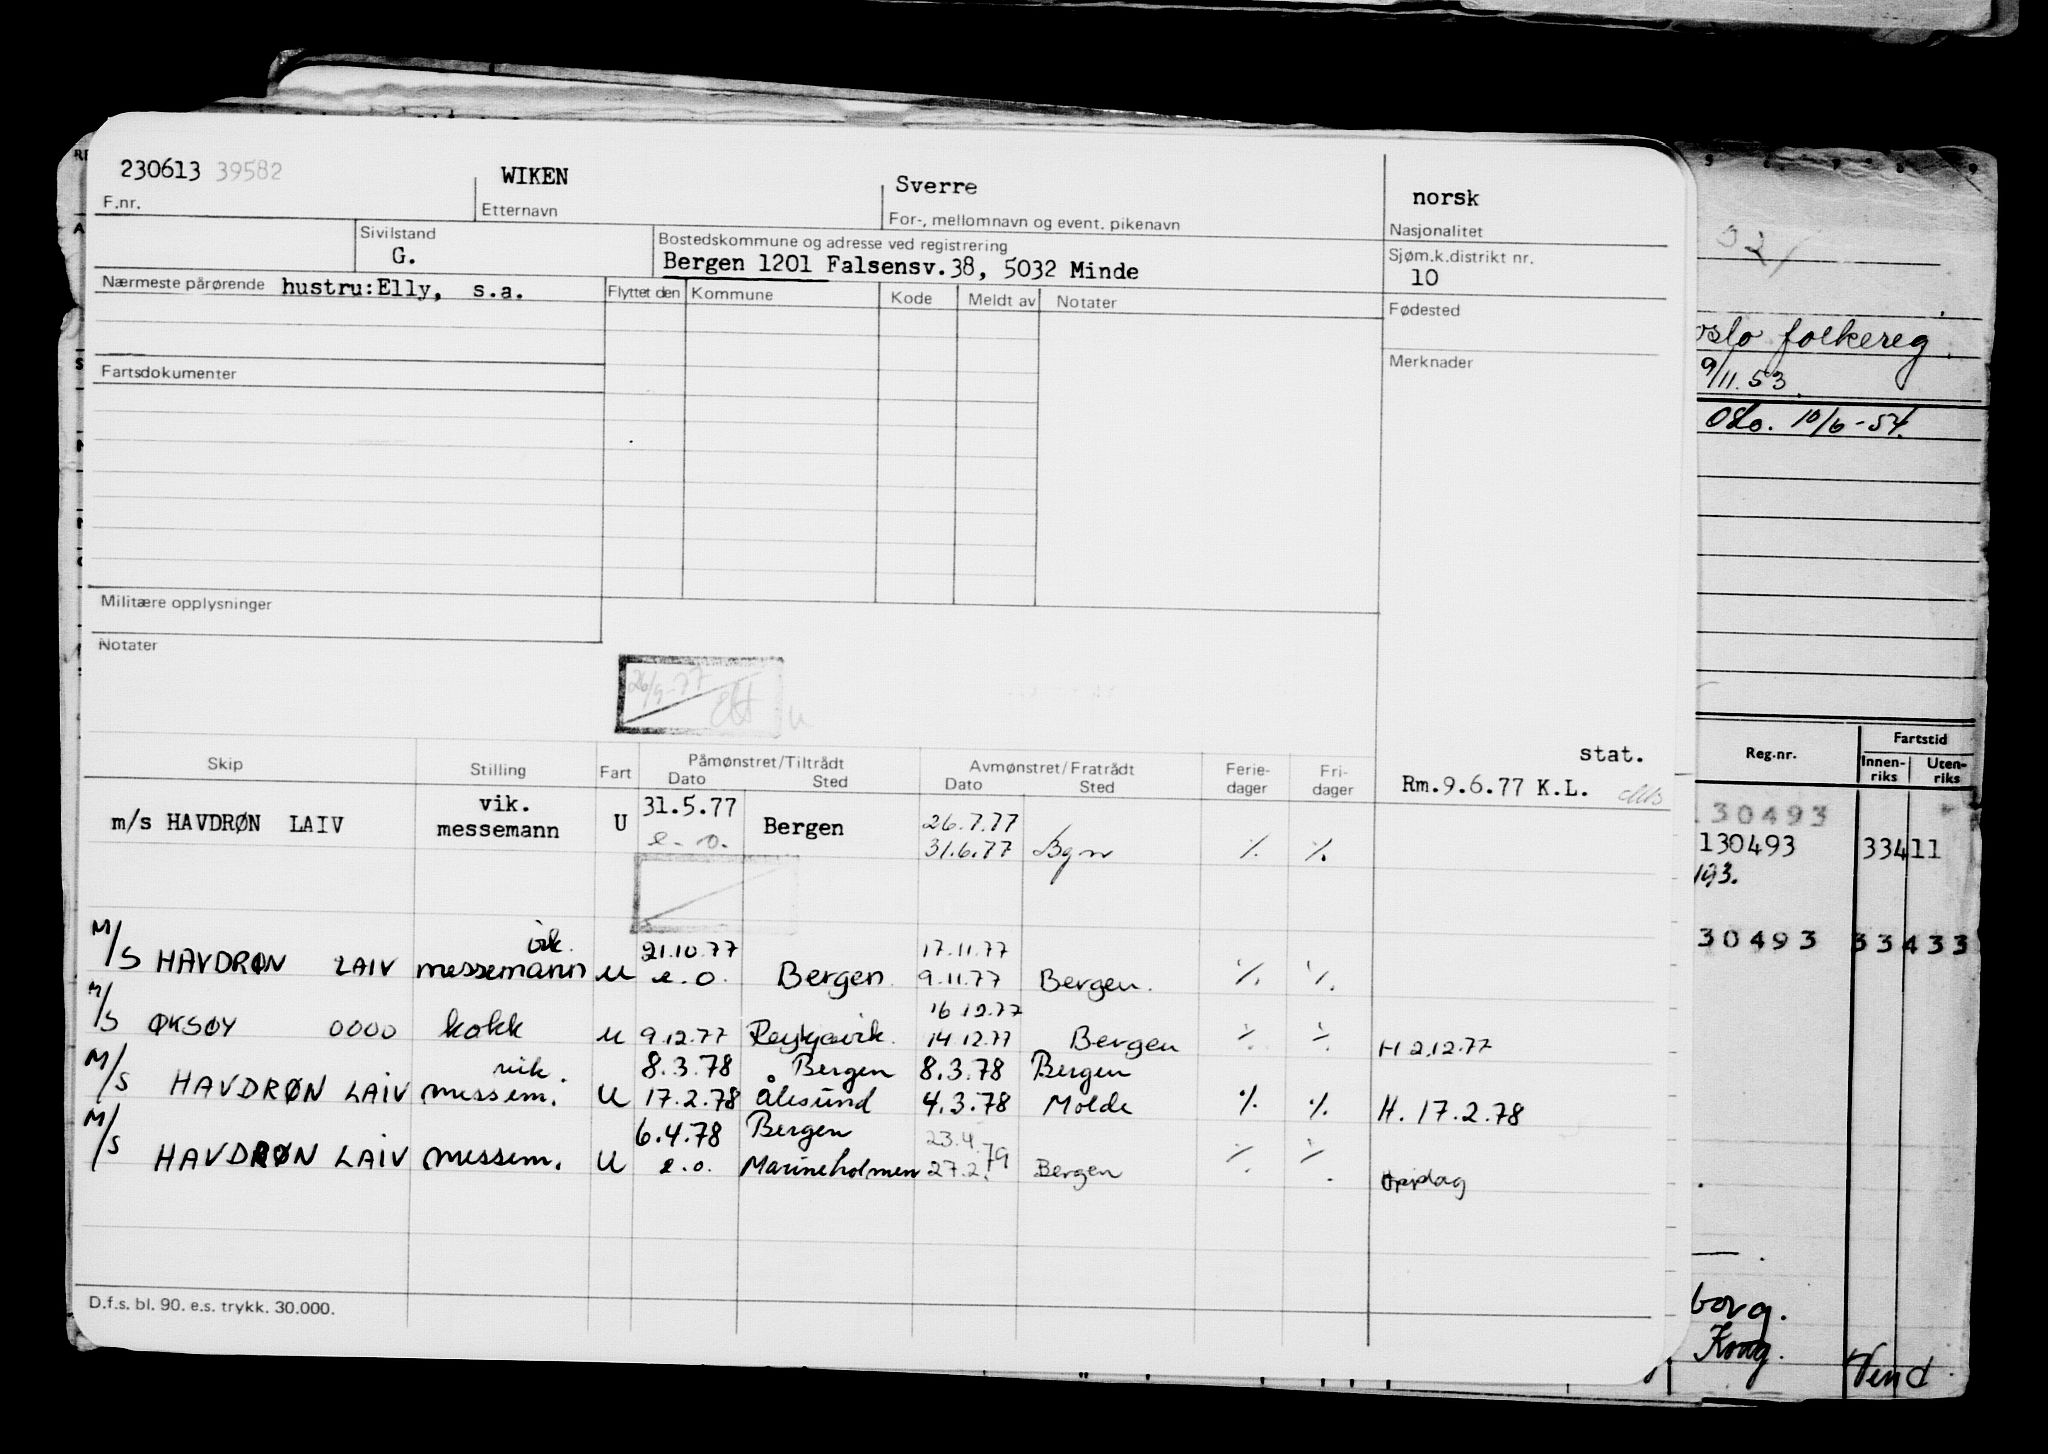 230613 39582
WIKEN
Sverre
norsk
F.nr.
Etternavn
For-, mellomnavn og event. pikenavn
Nasjonalitet
Sivilstand
G.
Bostedskommune og adresse ved registrering
Bergen 1201 Falsensv.38, 5032 Minde
Sjøm.k.distrikt nr.
10
Nærmeste pårørende hustru:Elly, s.a.
Flyttet den Kommune Kode Meldt av Notater
Fødested
Merknader
Fartsdokumenter
Militære opplysninger
Notater
26/9-77
stat.
Rm.9.6.77 K.L.
Skip Stilling Fart Påmønstret/Tiltrådt Avmønstret/Fratrådt Ferie-dager Fri-dager
Dato Sted Dato Sted
vik. 31.5.77 26.7.77
m/s HAVDRØN LAIV messemann U e.o. Bergen 31.6.77 Bgn % %
vik. 21.10.77 17.11.77
M/S HAVDRØN LAIV messemann U e.o. Bergen 9.11.77 Bergen. % %
16 12.77
M/S ØKSØY 0000 kokk U 9.12.77 Reykjavik 14.12.77 Bergen % % H 2.12.77
vik. 8.3.78 Bergen 8.3.78 Bergen
M/S HAVDRØN LAIV messem. U 17.2.78 Ålesund 4.3.78 Molde % % H. 17.2.78
6.4.78 Bergen 23.4.79
M/S HAVDRØN LAIV messem. U e.o. Marineholmen 27.2. Bergen % % Oppdag
D.f.s. bl. 90. e.s. trykk. 30.000.
oslo folkereg.
9/11.53.
Oslo. 10/6-54.
Reg.nr.
Fartstid
Innen-riks
Uten-riks
130493
130493 33411
193.
30493 33433
borg.
Vend